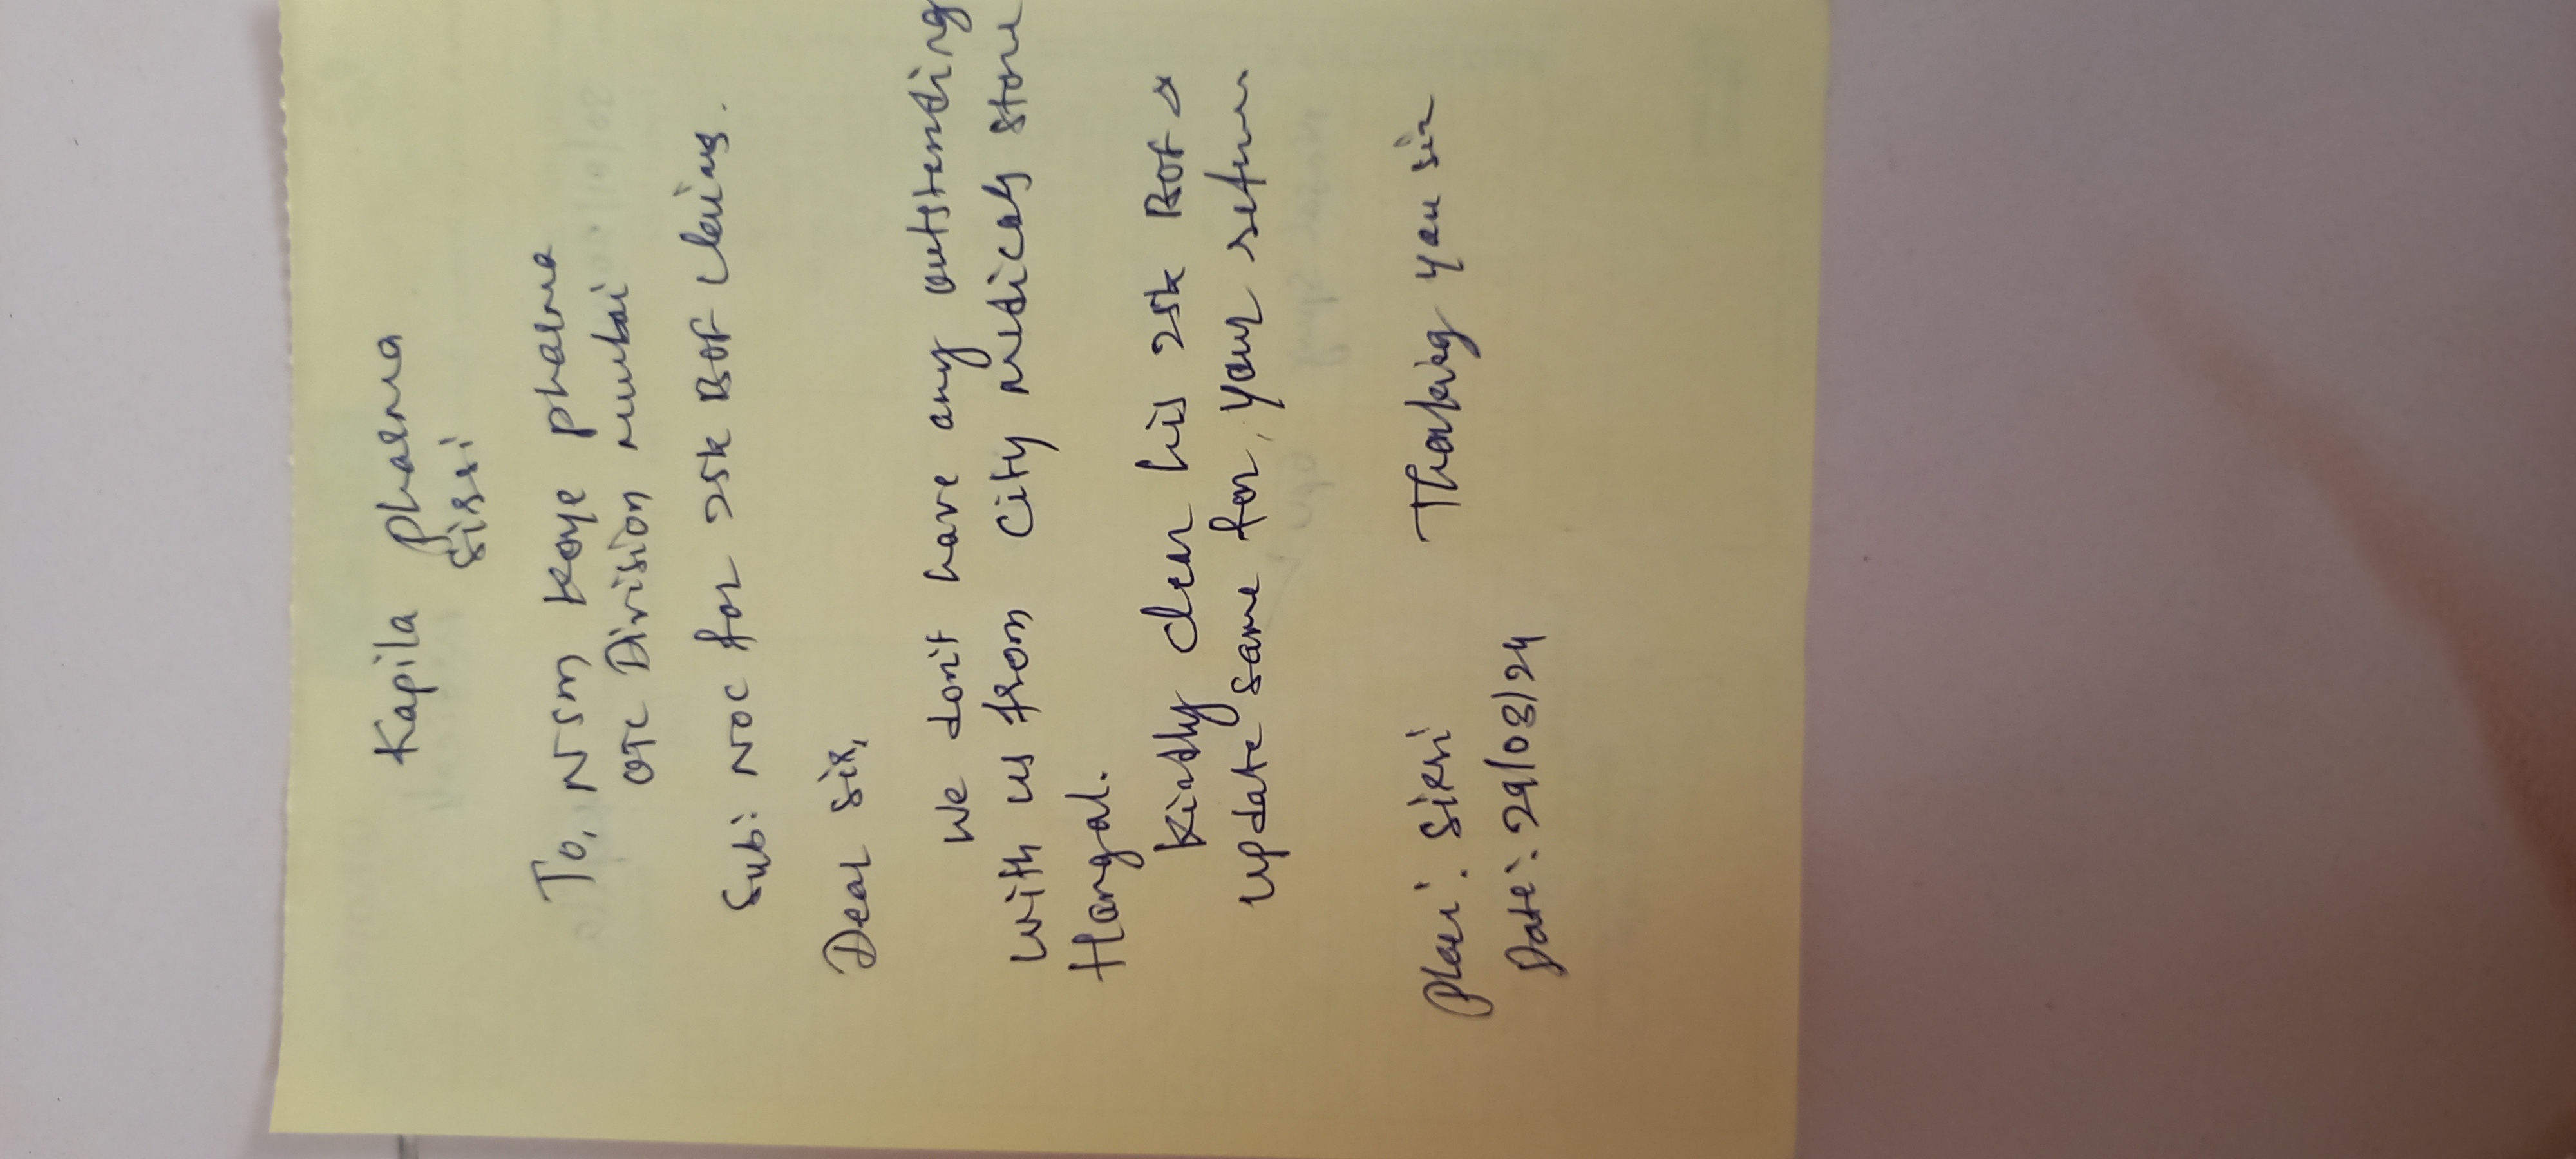 Kapila pharma
Sirsi
To, NSM Koye pharma
OTC Division mumbai
Sub: NOC for 25k BOF claims.
Dear Sir,
We don't have any outstanding
with us from City medicals store
Hangal.
Kindly clear his 25k BOF &
update same for, your return
Thanking you sir
place: Sirsi
Date: 29/08/24